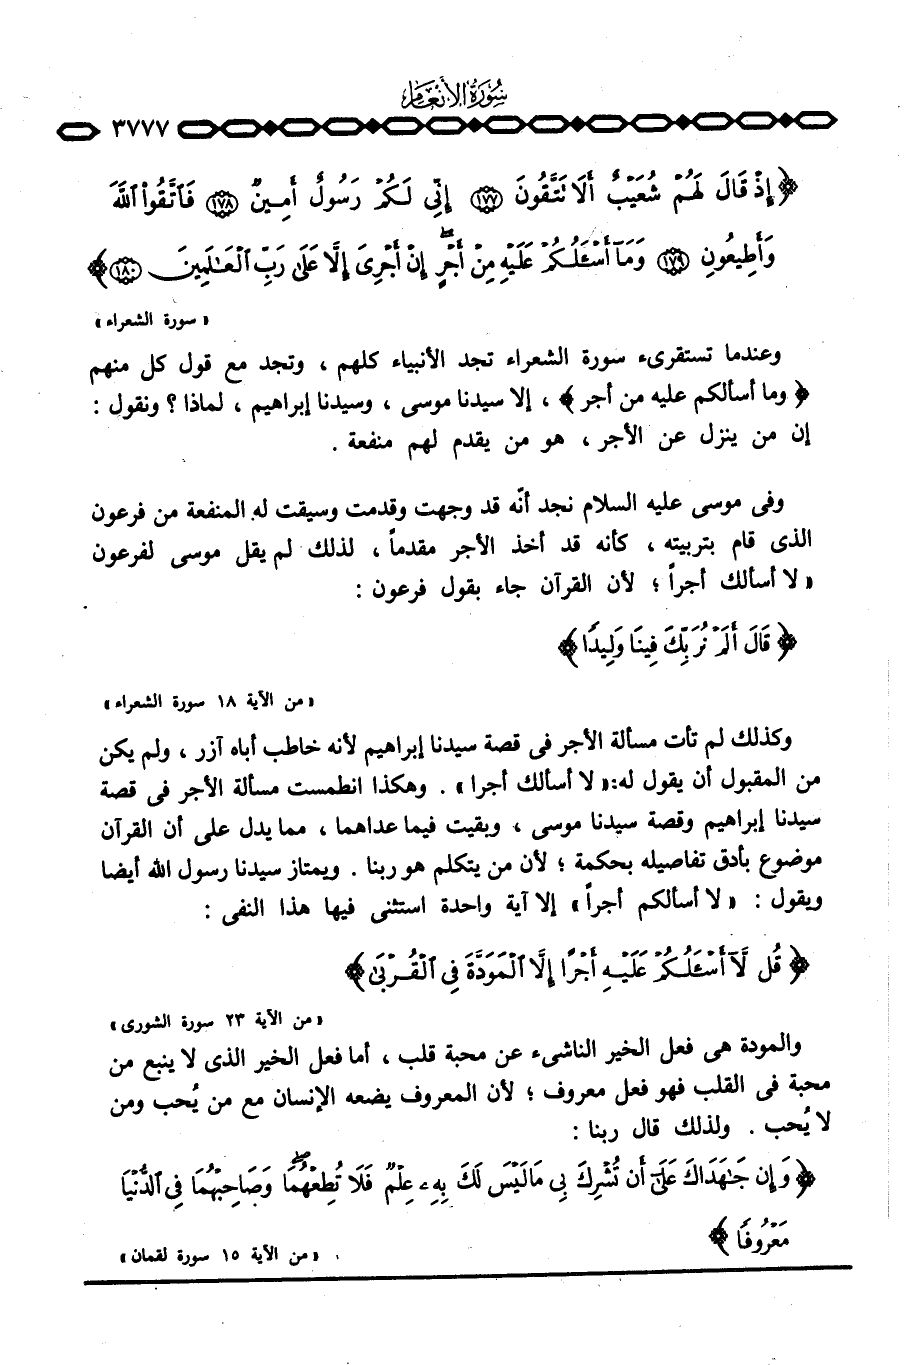 سورة الأنعام
٣٧٧٧
﴿ إِذْ قَالَ لَهُمْ شُعَيْبٌ أَلَا تَتَّقُونَ ١٧٧ إِنِّي لَكُمْ رَسُولٌ أَمِينٌ ١٧٨ فَاتَّقُوا۟ اللَّهَ
وَأَطِيعُونِ ١٧٩ وَمَآ أَسْـَٔلُكُمْ عَلَيْهِ مِنْ أَجْرٍ ۖ إِنْ أَجْرِيَ إِلَّا عَلَىٰ رَبِّ الْعَـٰلَمِينَ ١٨٠ ﴾
« سورة الشعراء »
وعندما تستقرىء سورة الشعراء تجد الأنبياء كلهم ، وتجد مع قول كل منهم
﴿ وما أسألكم عليه من أجر ﴾ ، إلا سيدنا موسى ، وسيدنا إبراهيم ، لماذا ؟ ونقول :
إن من ينزل عن الأجر ، هو من يقدم لهم منفعة .
وفى موسى عليه السلام نجد أنّه قد وجهت وقدمت وسيقت له المنفعة من فرعون
الذى قام بتربيته ، كأنه قد أخذ الأجر مقدماً ، لذلك لم يقل موسى لفرعون
« لا أسألك أجراً ؛ لأن القرآن جاء بقول فرعون :
﴿ قَالَ أَلَمْ نُرَبِّكَ فِينَا وَلِيدًا ﴾
« من الآية ١٨ سورة الشعراء »
وكذلك لم تأت مسألة الأجر فى قصة سيدنا إبراهيم لأنه خاطب أباه آزر ، ولم يكن
من المقبول أن يقول له:« لا أسألك أجرا » . وهكذا انطمست مسألة الأجر فى قصة
سيدنا إبراهيم وقصة سيدنا موسى ، وبقيت فيما عداهما ، مما يدل على أن القرآن
موضوع بأدق تفاصيله بحكمة ؛ لأن من يتكلم هو ربنا . ويمتاز سيدنا رسول الله أيضا
ويقول : « لا أسألكم أجراً » إلا آية واحدة استثنى فيها هذا النفى :
﴿ قُل لَّآ أَسْـَٔلُكُمْ عَلَيْهِ أَجْرًا إِلَّا الْمَوَدَّةَ فِي الْقُرْبَىٰ ﴾
« من الآية ٢٣ سورة الشورى »
والمودة هى فعل الخير الناشىء عن محبة قلب ، أما فعل الخير الذى لا ينبع من
محبة فى القلب فهو فعل معروف ؛ لأن المعروف يضعه الإنسان مع من يُحب ومن
لا يُحب . ولذلك قال ربنا :
﴿ وَإِن جَـٰهَدَاكَ عَلَىٰٓ أَن تُشْرِكَ بِي مَا لَيْسَ لَكَ بِهِۦ عِلْمٌ فَلَا تُطِعْهُمَا ۖ وَصَاحِبْهُمَا فِي الدُّنْيَا
مَعْرُوفًا ﴾
« من الآية ١٥ سورة لقمان »